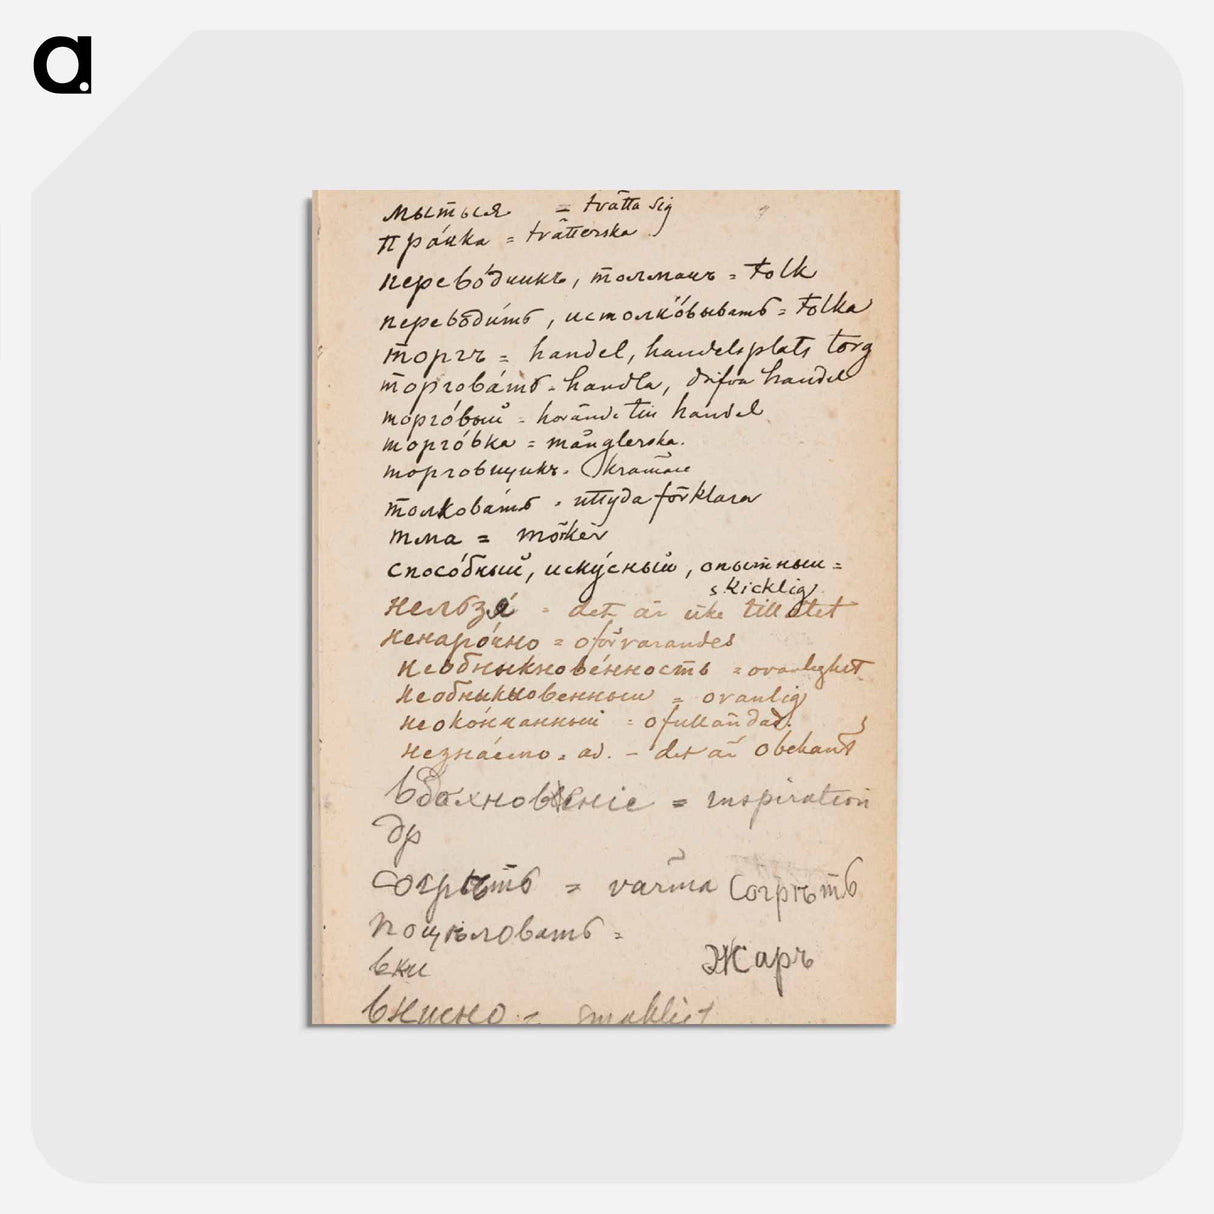 a.
мытыя = tvätta sig
прачка = tvätterska
перево́дчикъ, толмачъ = tolk
переводи́ть, истолко́вывать = tolka
торгъ = handel, handelsplats torg
торгова́ть - handla, drifva handel
торго́вый = hörande till handel
торго́вка = månglerska.
торговщикъ - krämare
толкова́ть - uttyda förklara
тма = mörker
спосо́бный, иску́сный, опытный =
skicklig
нельзя́ = det är icke tillåtet
ненаро́чно = oförvarandes
необныкнове́нность = ovanlighet
необныкновенный = ovanlig
неоко́нчанный = ofulländad.
незна́емо = ad. - det är obekant
вдохновеніе = inspiration
др
согрѣть = värma Согрѣть
поцѣловать =
вки Жаръ
вкисно = smakligt